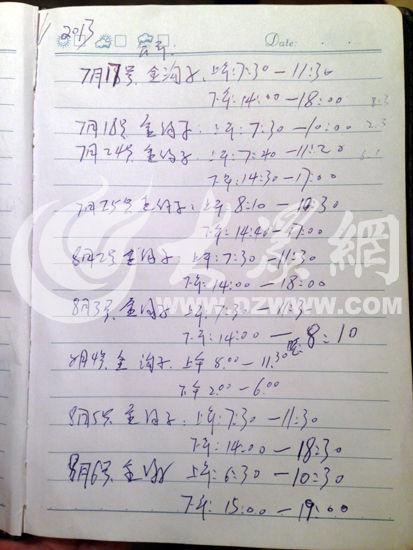 2013
Date:
7月17号 金沟子 上午:7:30-11:30
下午:14:00-18:00
7月18号 金沟子: 上午:7:30-10:00
7月24号 金沟子: 上午:7:40-11:20
下午:14:30-17:00
7月25号 金沟子: 上午8:10-10:30
下午:14:40-17:00
8月2号 金沟子: 上午:7:30-11:30
下午:14:00-18:00
8月3号 金沟子: 上午:7:30-11:30
下午:14:00-晚8:10
8月4号 金沟子. 上午8:00-11:30
下午2:00-6:00
8月5号 金沟子: 上午:7:30-11:30
下午:14:00-18:30
8月6号 金沟子 上午:6:30-10:30
下午:15:00-19:00
大众網
www.dzwww.com